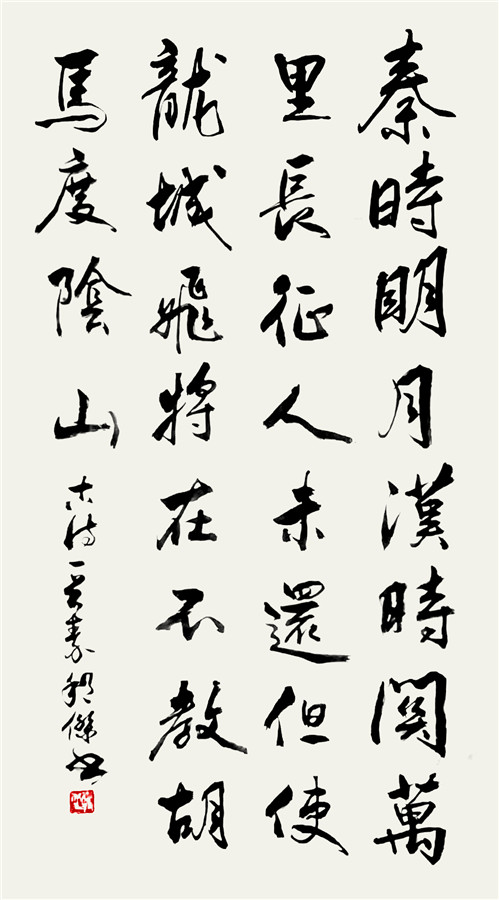 秦時明月漢時關萬
里長征人未還但使
龍城飛將在不教胡
馬度陰山
古詩一首
傑書